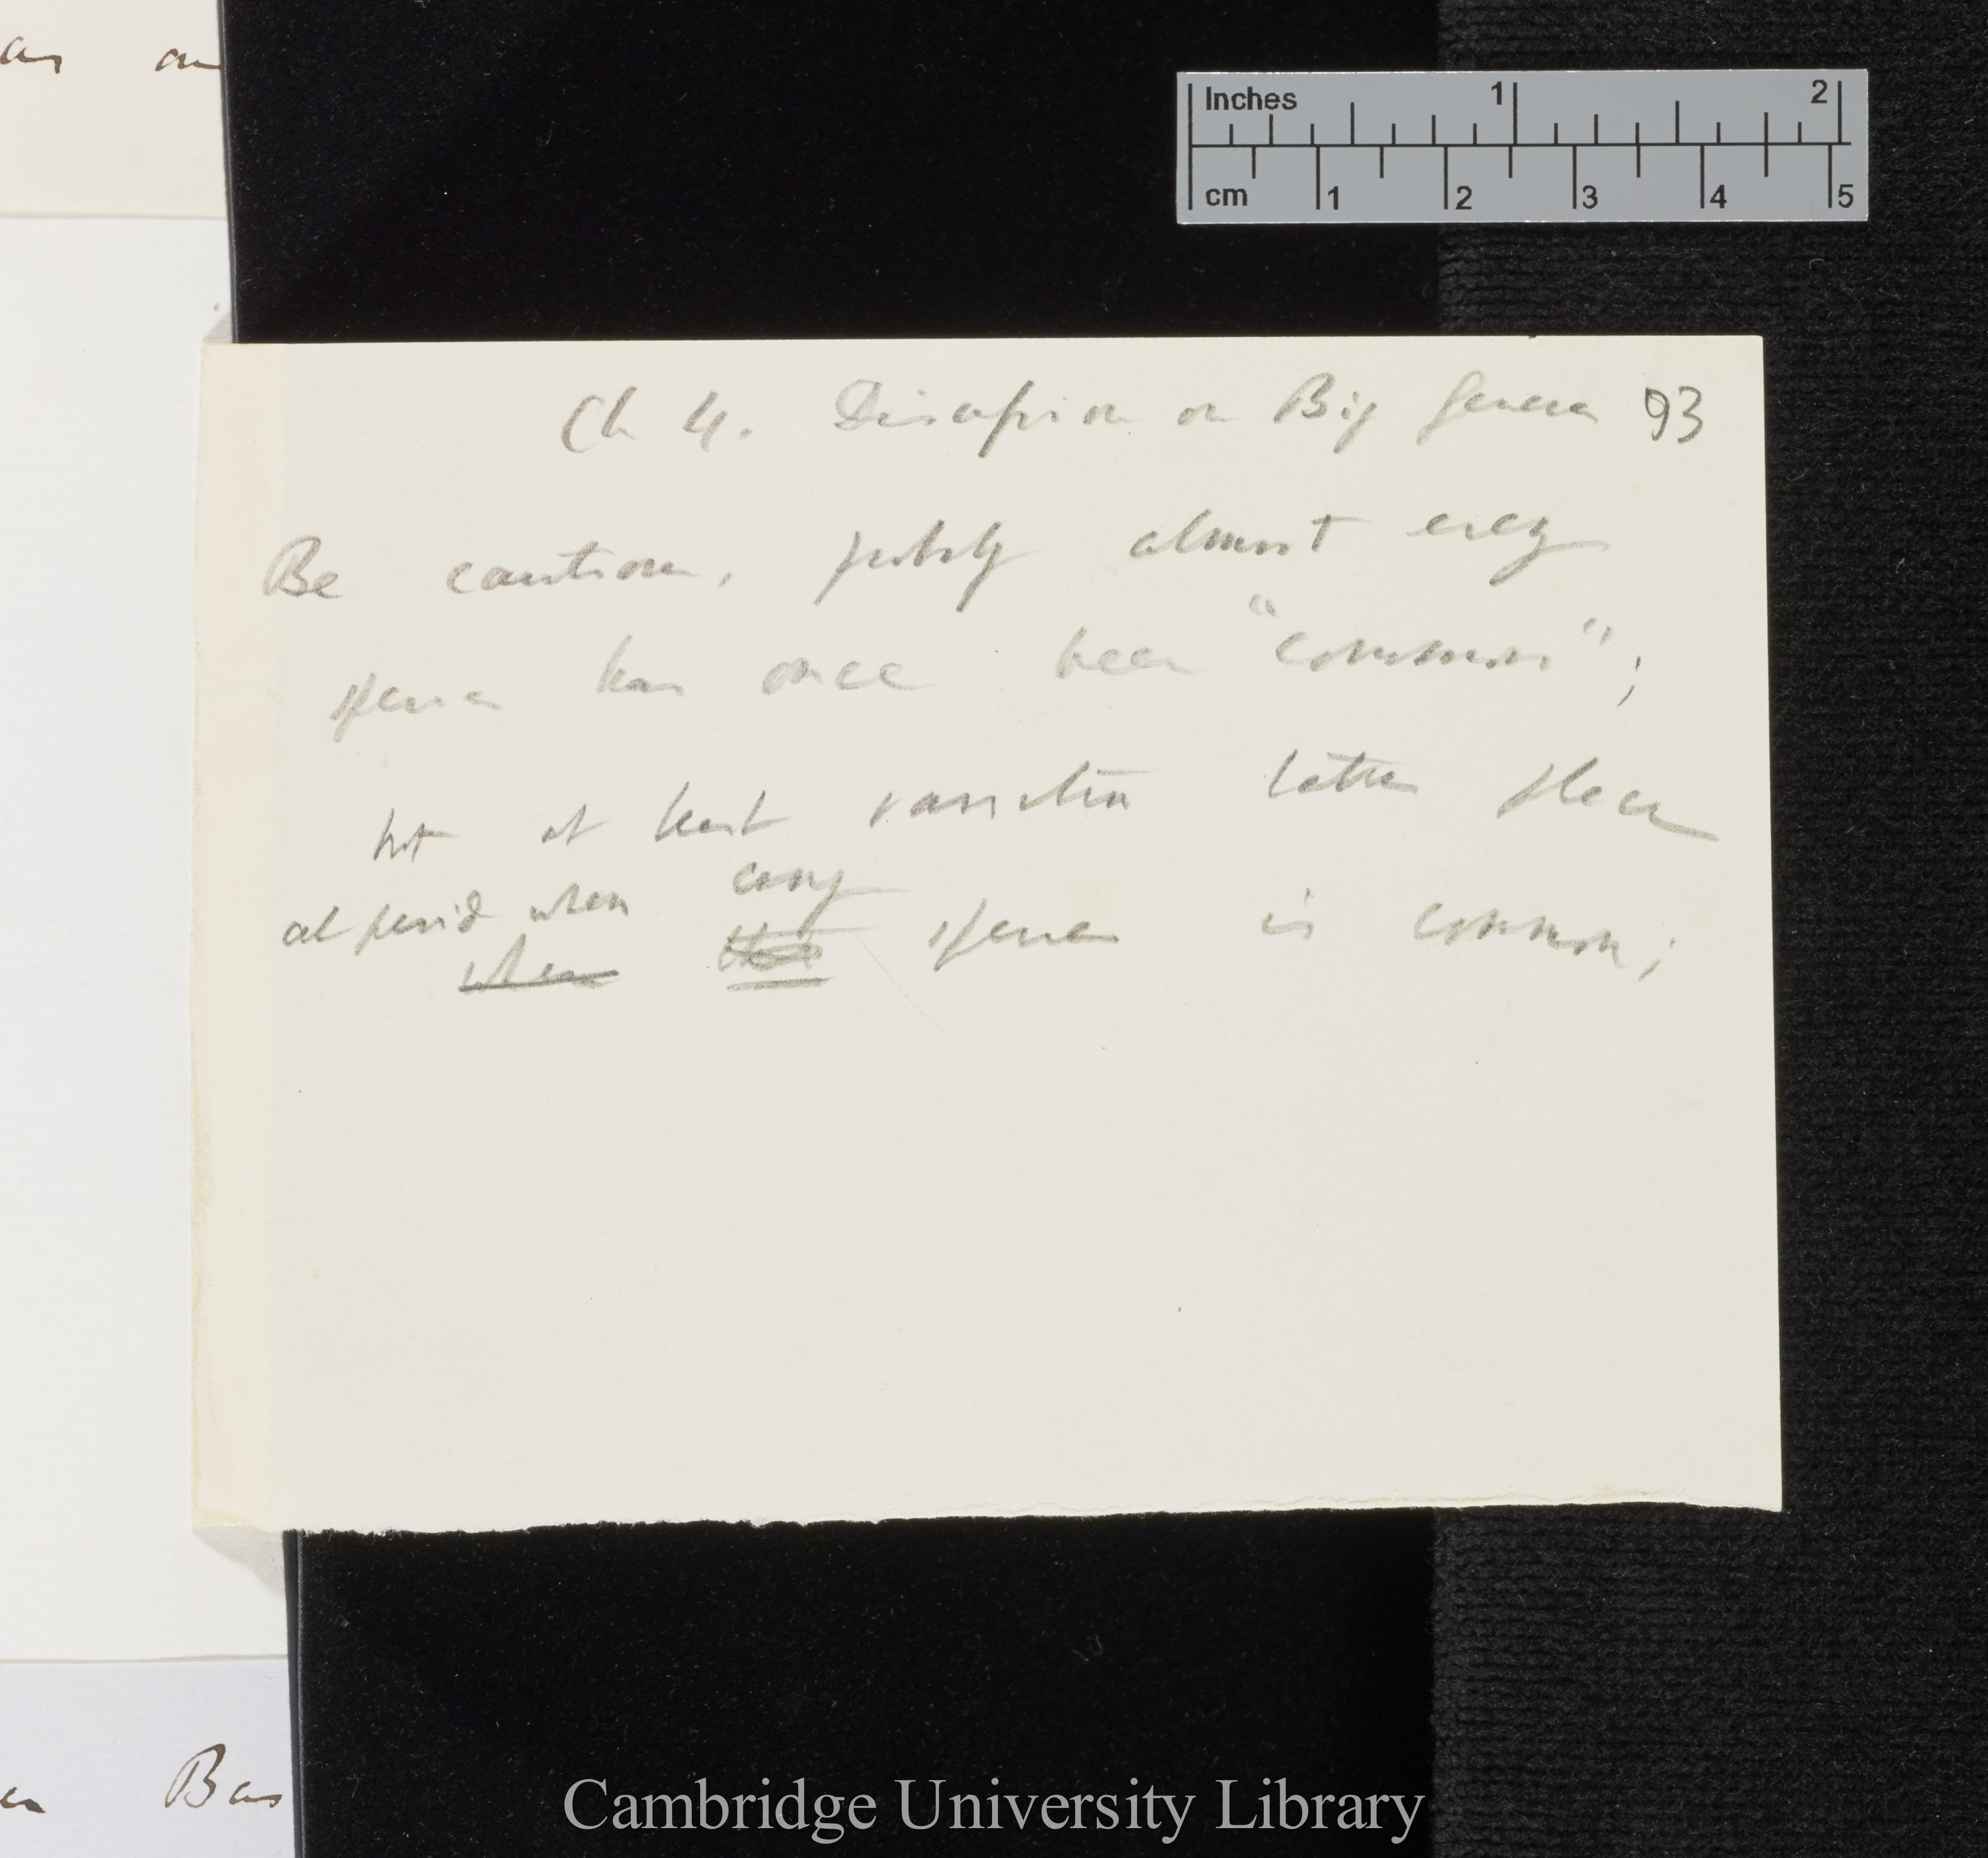 as an
Inches 1 2
cm 1 2 3 4 5
Ch 4. Discussion on Big Genera 93
Be cautious, probly almost every
species has once been "common";
but at least varieties take place
at period when any
when the species is common;
Bas
Cambridge University Library